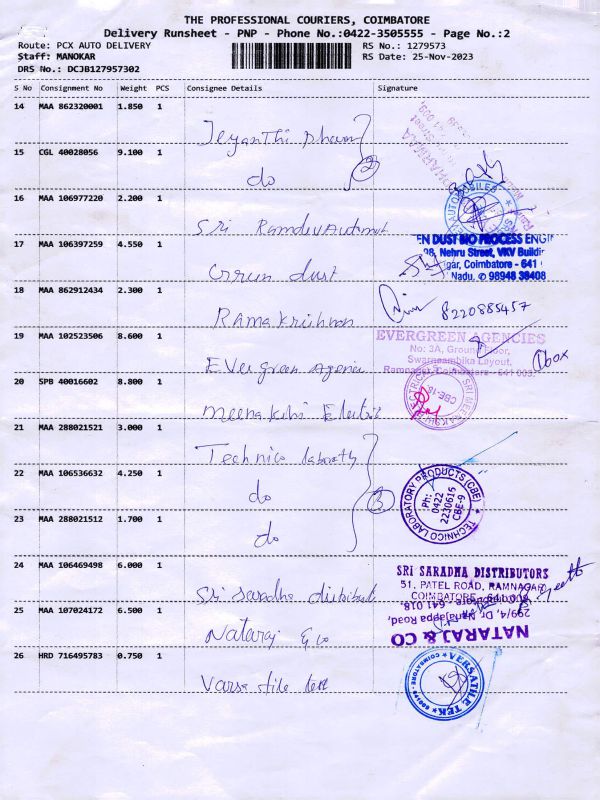 THE PROFESSIONAL COURIERS, COIMBATORE
Delivery Runsheet - PNP - Phone No.:0422-3505555 - Page No.:2
Route: PCX AUTO DELIVERY
RS No.: 1279573
Staff: MANOKAR
RS Date: 25-Nov-2023
DRS No.: DCJB127957302
S No Consignment No Weight PCS Consignee Details Signature
14 MAA 862320001 1.850 1
Jeyanthi
15 CGL 40028056 9.100 1
do
2
16 MAA 106977220 2.200 1
Sri Ramdev
17 MAA 106397259 4.550 1
dust
EN DUST BIO PROCESS ENGI
98, Nehru Street, VKV Buildin
gar, Coimbatore - 641
Nadu, ✆ 98948 38408
18 MAA 862912434 2.300 1
Rama Krishnan
8220885457
19 MAA 102523506 8.600 1
Evergreen Agencies
EVERGREEN AGENCIES
No: 3A, Ground Floor,
Swarnaambika Layout,
Ramnagar, Coimbatore - 641 009.
1 box
20 SPB 40016602 8.800 1
Meenakshi Electric
CBE-18
21 MAA 288021521 3.000 1
Technico
22 MAA 106536632 4.250 1
do
3
23 MAA 288021512 1.700 1
do
TECHNICO LABORATORY PRODUCTS (CBE)
Ph:
0422
2230615
CBE-9
24 MAA 106469498 6.000 1
Sri
SRI SARADHA DISTRIBUTORS
51, PATEL ROAD, RAMNAGAR
COIMBATORE
25 MAA 107024172 6.500 1
Nataraj & Co
NATARAJ & CO
299/4, Dr. Nanjappa Road,
641 018.
26 HRD 716495783 0.750 1
VERSATILE TEK
COIMBATORE